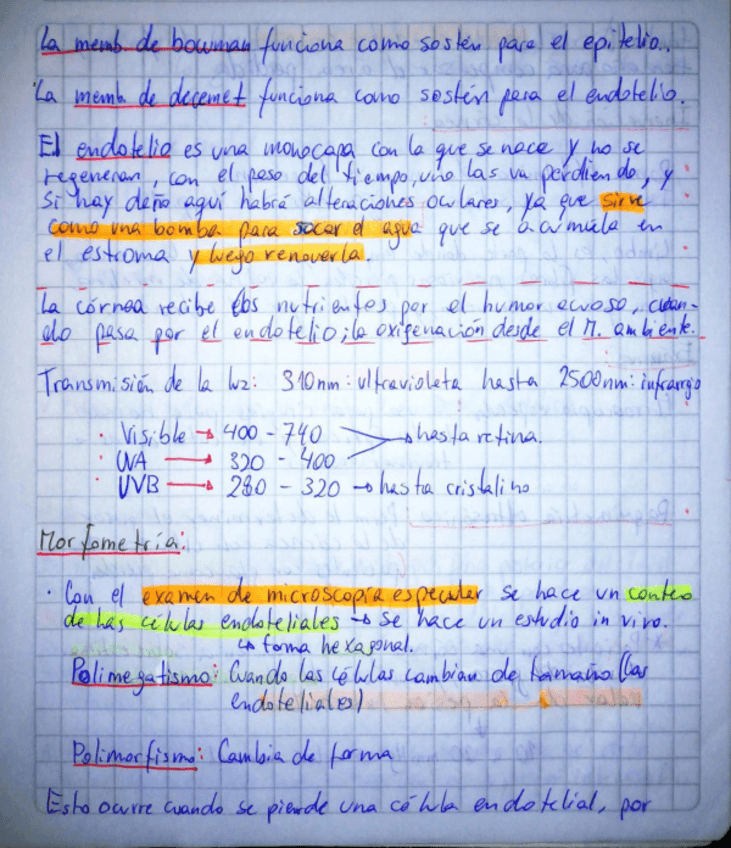 La memb. de bowman funciona como sostén para el epitelio.
La memb. de decemet funciona como sostén para el endotelio.
El endotelio es una monocapa con la que se nace y no se
regeneran, con el paso del tiempo, uno las va perdiendo, y
si hay daño aquí habrá alteraciones oculares, ya que sirve
como una bomba para sacar el agua que se acumula en
el estroma y luego renoverla.
La córnea recibe los nutrientes por el humor acuoso, cuan-
do pasa por el endotelio; la oxigenación desde el M. ambiente.
Transmisión de la luz: 310nm: ultravioleta hasta 2500nm: infrarrojo
· Visible → 400 - 740 → hasta retina.
· UVA → 320 - 400
· UVB → 280 - 320 → hasta cristalino
Morfometría:
· Con el examen de microscopía especular se hace un conteo
de las células endoteliales → Se hace un estudio in vivo.
↳ forma hexagonal.
Polimegatismo: Cuando las células cambian de tamaño (las
endoteliales)
Polimorfismo: Cambia de forma
Esto ocurre cuando se pierde una célula endotelial, por